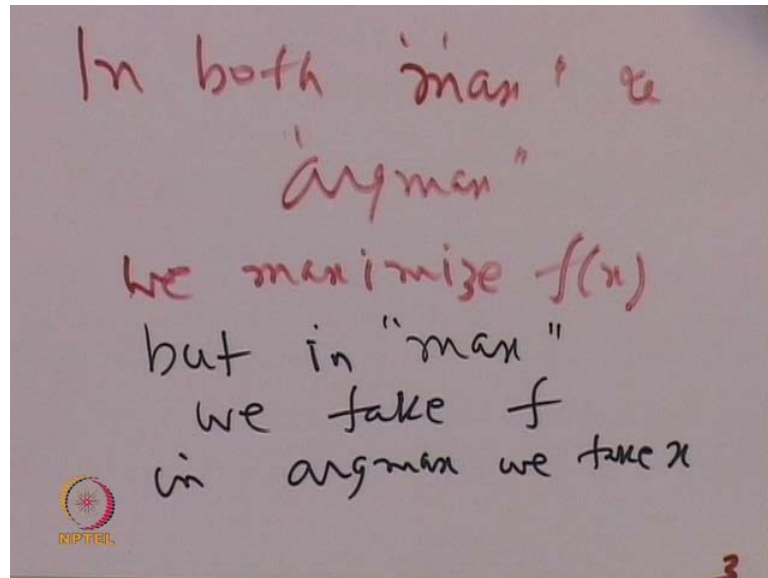 In both 'max' &
"argmax"
we maximize f(x)
but in "max"
we take f
in argmax we take x
NPTEL
3